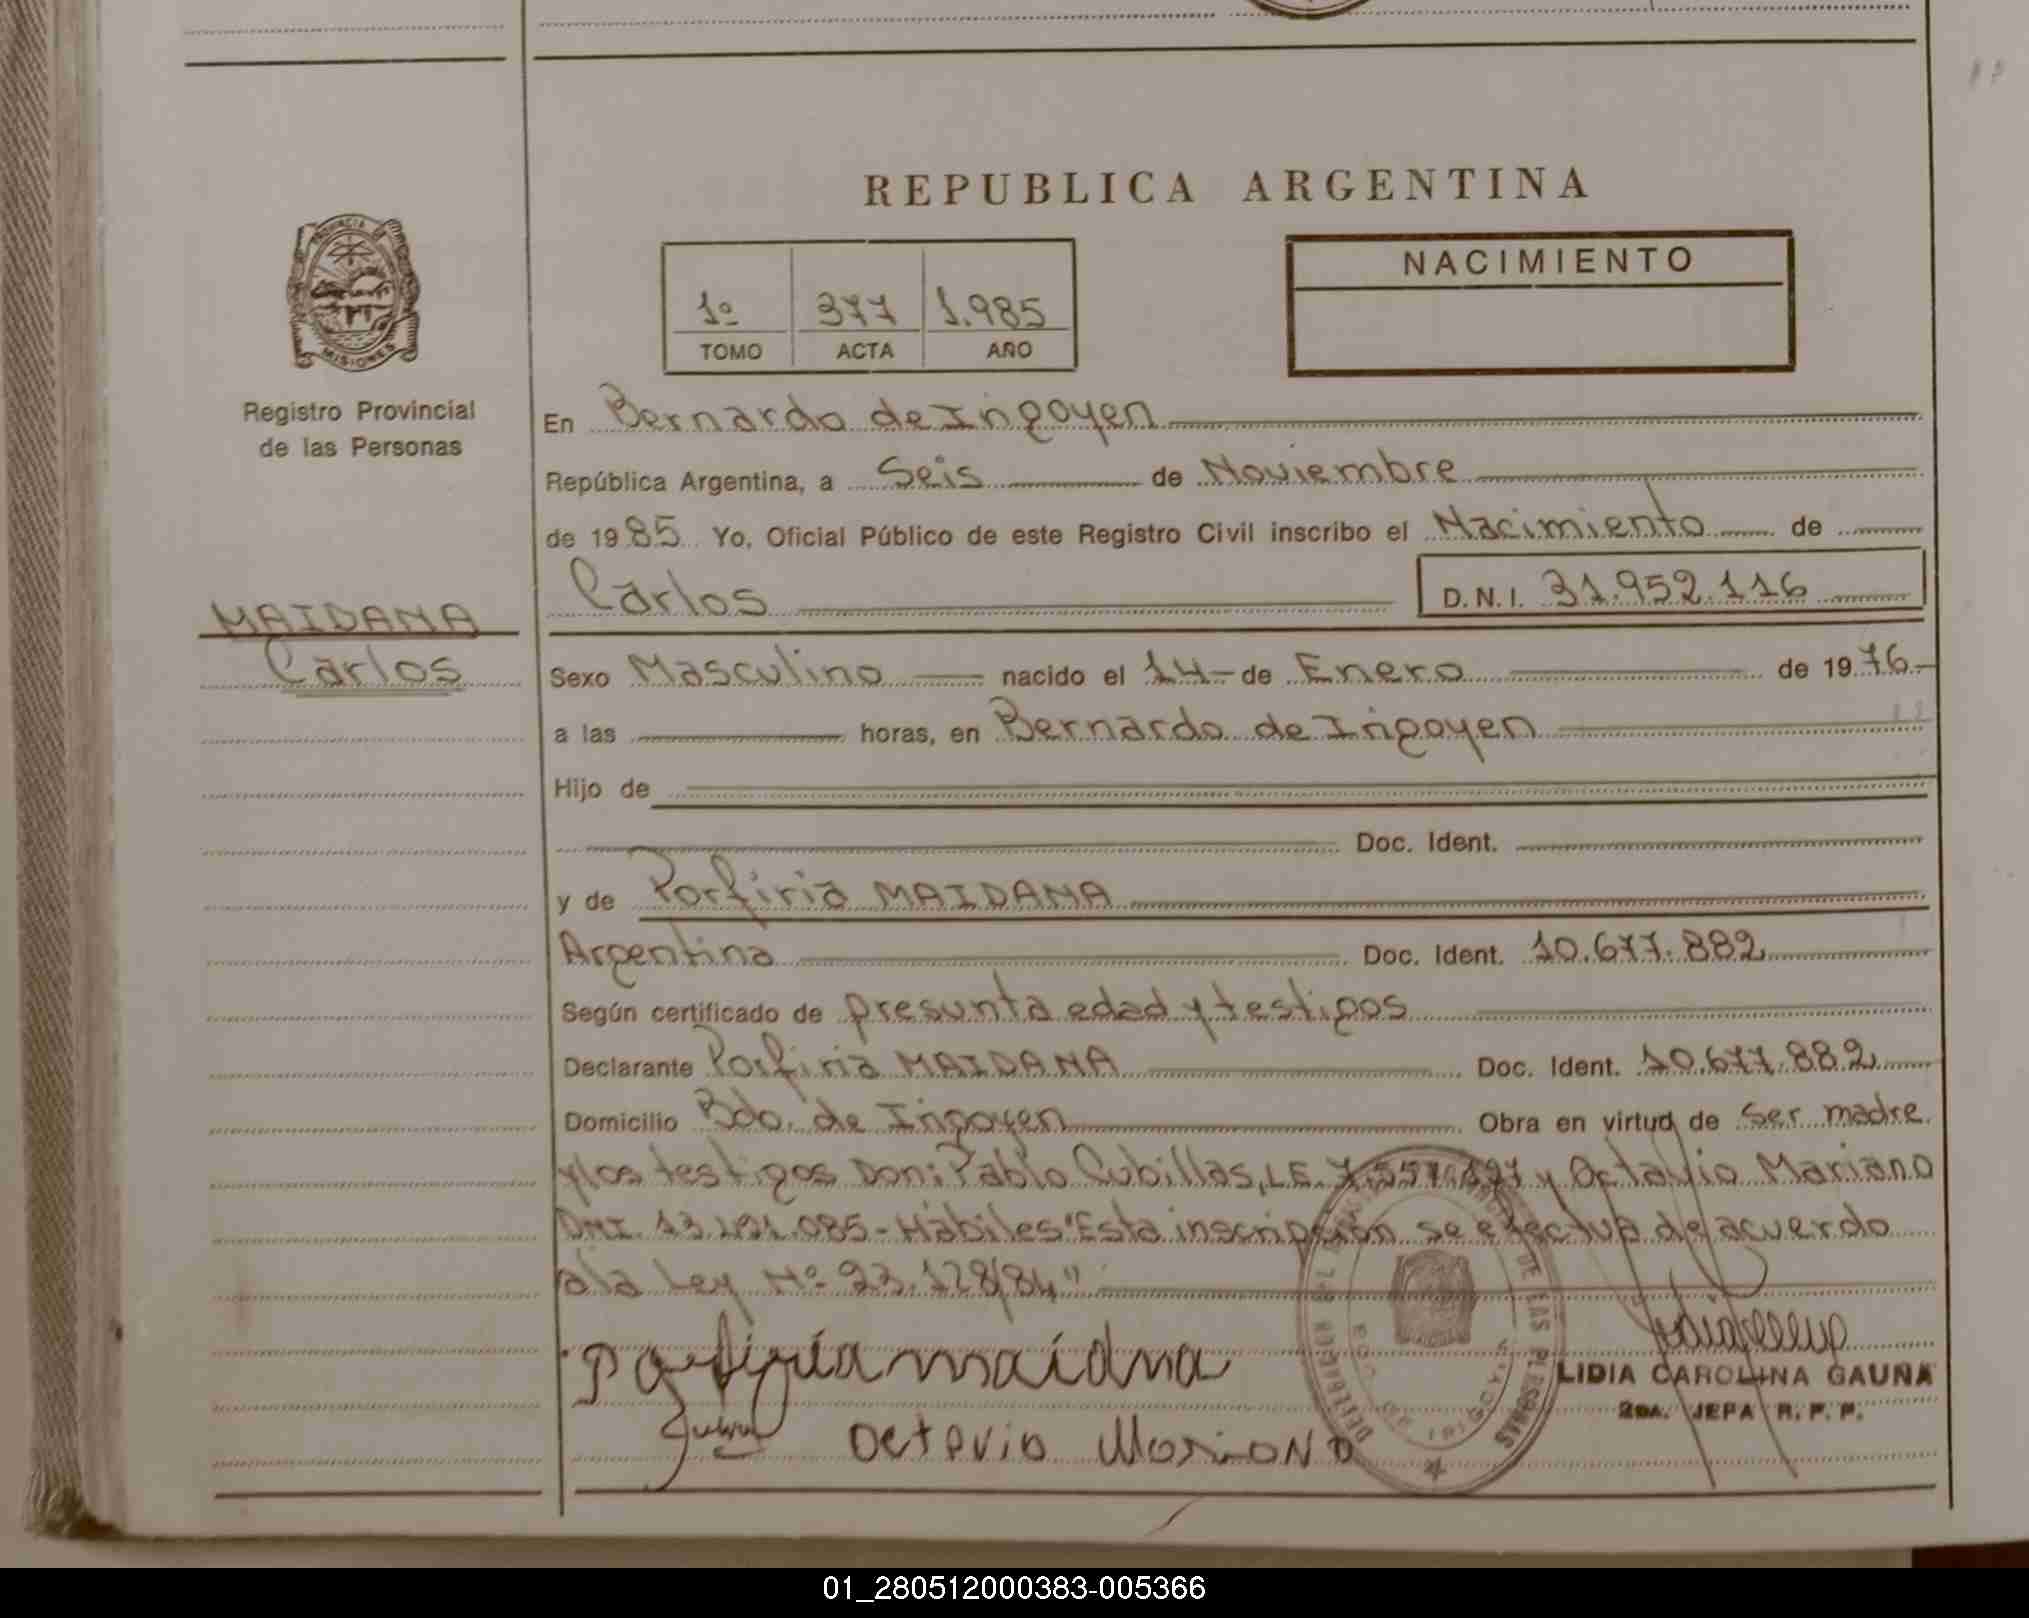 REPUBLICA ARGENTINA
PROVINCIA DE
MISIONES
Registro Provincial
de las Personas
1º 377 1.985
TOMO ACTA AÑO
NACIMIENTO
En Bernardo de Irigoyen
República Argentina, a Seis de Noviembre
de 1985 Yo, Oficial Público de este Registro Civil inscribo el Nacimiento de
Carlos D.N.I. 31.952.116
MAIDANA
Carlos
Sexo Masculino nacido el 14 de Enero de 1976
a las horas, en Bernardo de Irigoyen
Hijo de
Doc. Ident.
y de Porfiria MAIDANA
Argentina Doc. Ident. 10.677.882
Según certificado de presunta edad y testigos
Declarante Porfiria MAIDANA Doc. Ident. 10.677.882
Domicilio Bdo. de Irigoyen Obra en virtud de ser madre
y los testigos Don: Pablo Cubillas, LE. y Octavio Mariano
DNI. 13.191.085 - Hábiles "Esta inscripción se efectua de acuerdo
a la Ley Nº 23.128/84"
Porfiria maidna
Octavio Mariano
LIDIA CAROLINA GAUNA
2DA. JEFA R. P. P.
DE LAS PERSONAS
BDO. DE IRIGOYEN
01_280512000383-005366